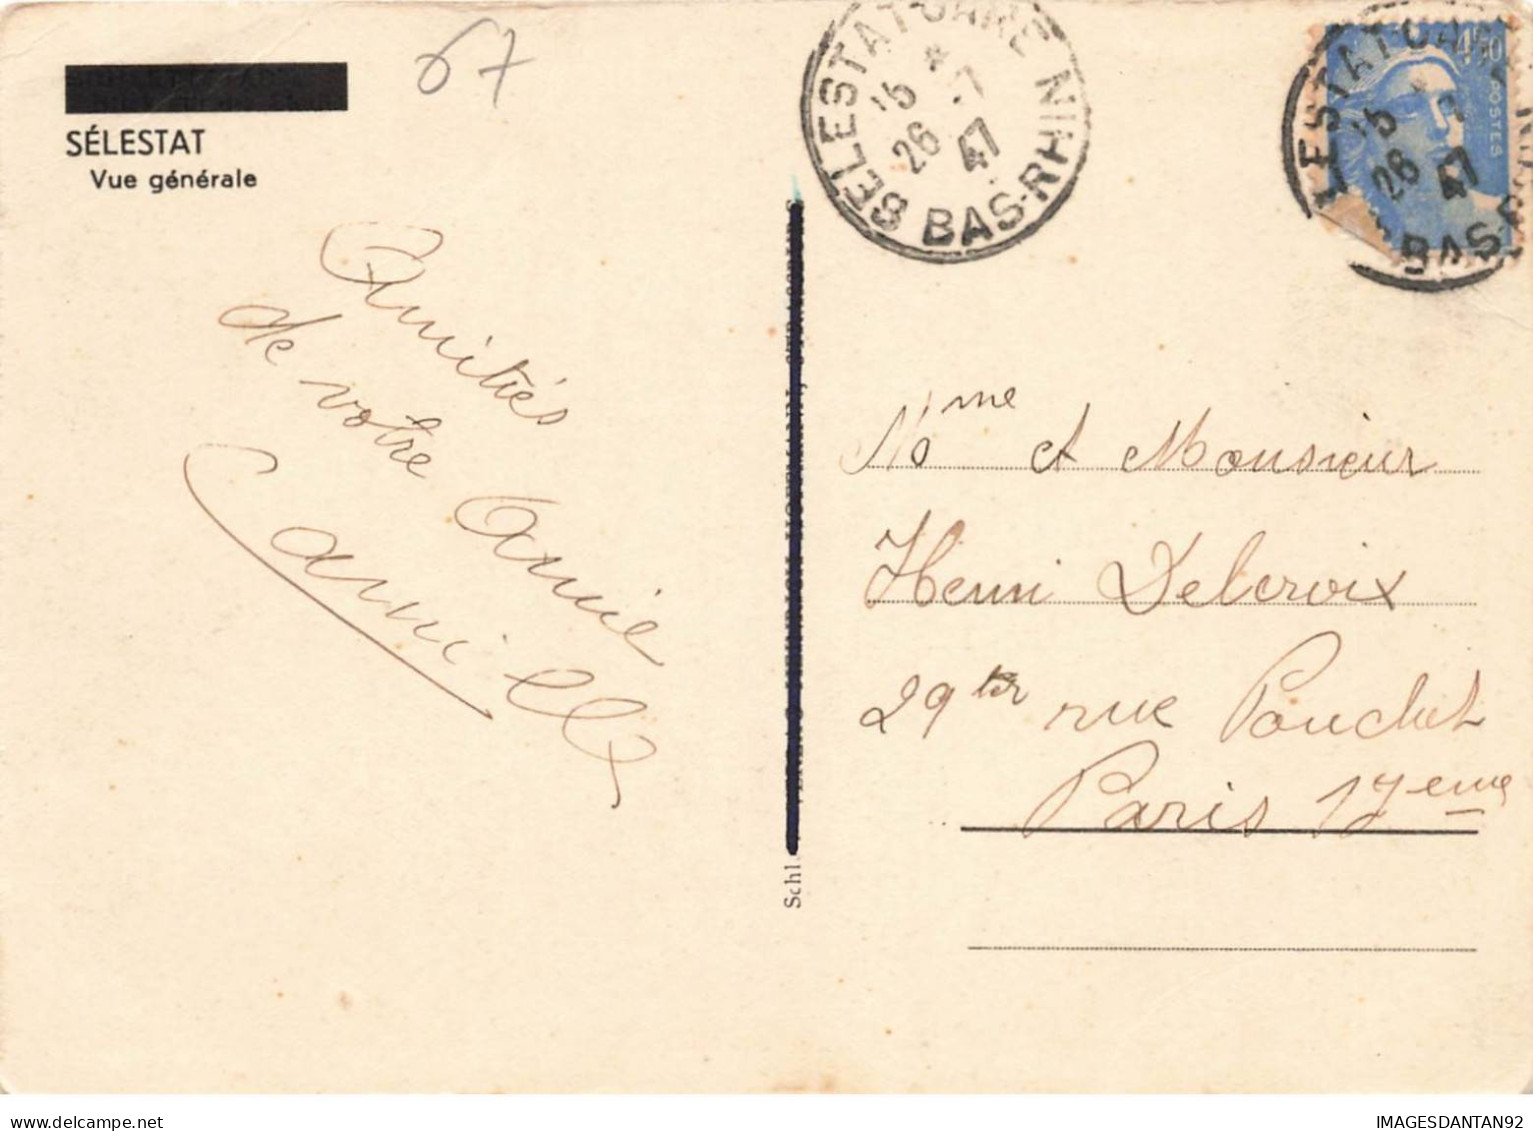 67
SÉLESTAT
Vue générale
Amitiés
de votre Amie
Camille
SELESTAT GARE
16 *
26 -7
47
BAS-RHIN
4f50
POSTES
LESTAT GA
16
26
47
BAS-R
Mme et Monsieur
Henri Delcroix
29ter rue Pouchet
Paris 17eme
Schl
IMAGESDANTAN92